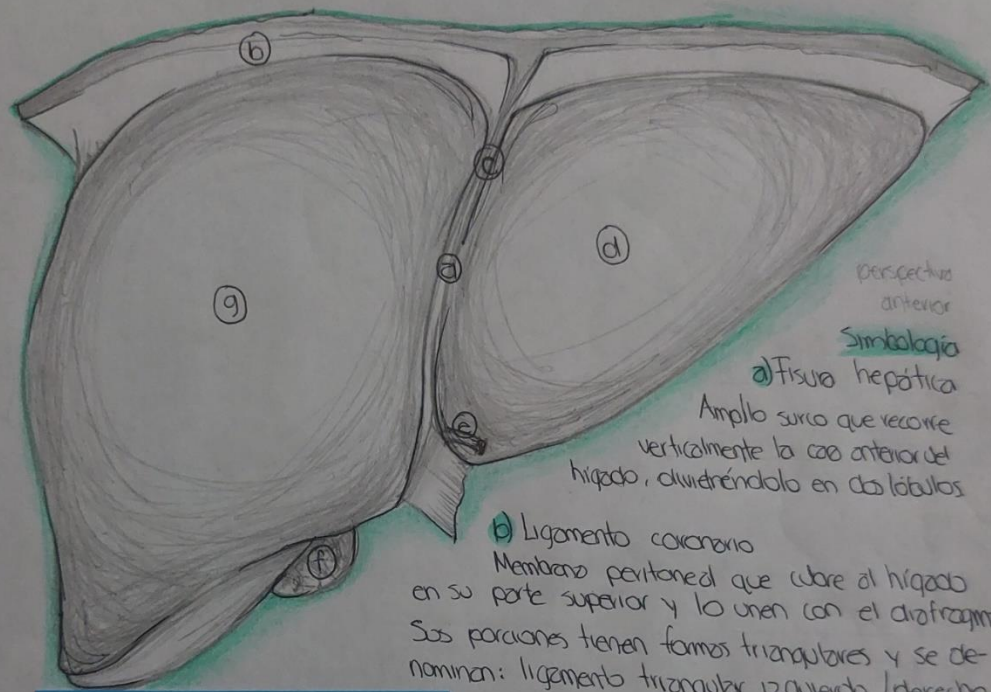 b
d
a
d
g
e
f
perspectiva
anterior
Simbología
a) Fisura hepática
Amplio surco que recorre
verticalmente la cara anterior del
hígado, diviéndolo en dos lóbulos
b) Ligamento coronario
Membrana peritoneal que cubre al hígado
en su parte superior y lo unen con el diafragm
Sus porciones tienen formas triangulares y se de-
nominan: ligamento triangular izquierdo /derecho